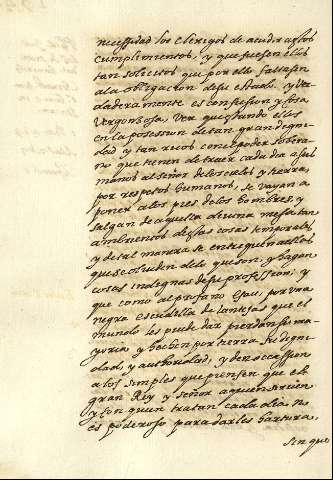 necessidad los clerigos de acudir a estos
cumplimientos, y que fuesen ellos
tan solicitos que por ello faltasen
a la obligacion de su estado. y ver
daderamente es confusion y cosa
vergonzosa. Ver que estando ellos
en la possesion de tan gran digni
dad y tan ricos con el poder sobera
no que tienen de traer cada dia a sus
manos al señor de los cielos y tierra,
por respetos humanos, se vayan a
poner a los pies de los hombres, y
salgan de aquella divina mesa tan
ambrientos de las cosas temporales
y de tal manera se entreguen a ellos
que se olviden de lo que son, y hagan
cosas indignas de su profession, y
que como al profano Esau, por una
negra escudilla de lantejas que el
mundo les puede dar pierdan su ma
yoria y hechen por tierra su digni
dad, y authoridad, y den occassion
a los simples que piensen que el
gran Rey y señor a quien sirven
y con quien tratan cada dia no
es poderoso para darles hartura,
sin que